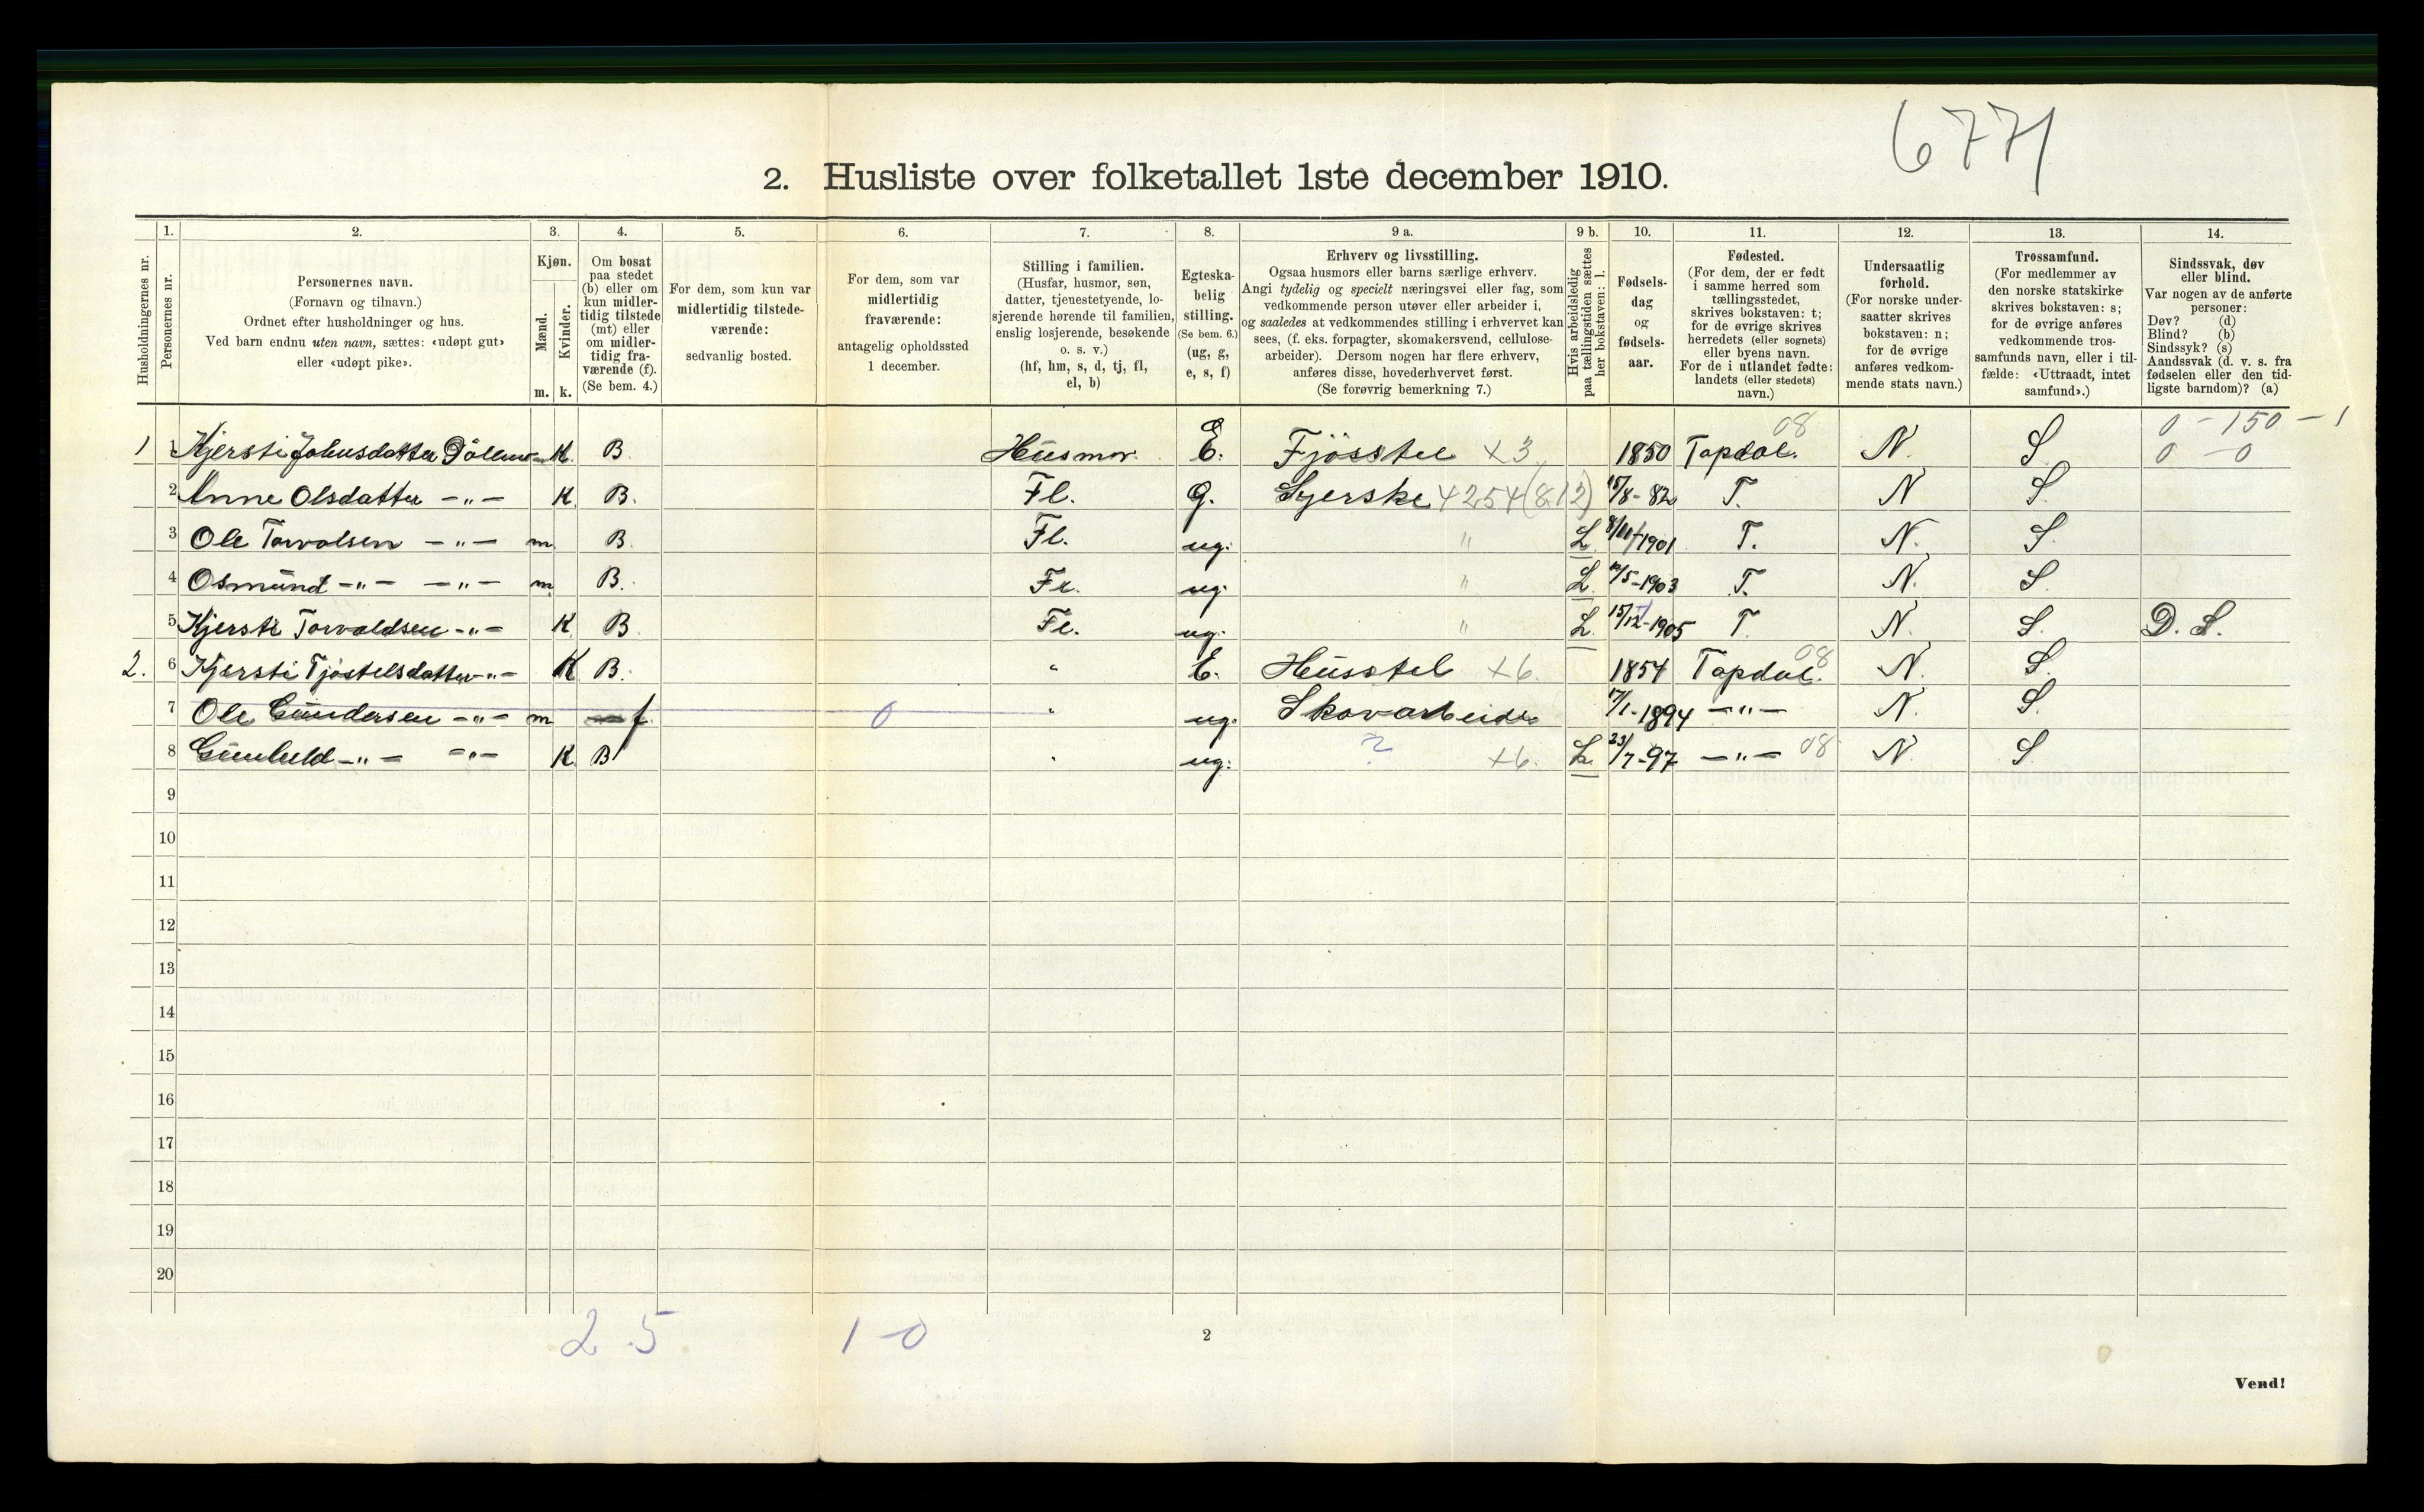 6771
2. Husliste over folketallet 1ste december 1910.
Husholdningernes nr.
1.
Personernes nr.
2.
Personernes navn.
(Fornavn og tilnavn.)
Ordnet efter husholdninger og hus.
Ved barn endnu uten navn, sættes: «udøpt gut»
eller «udøpt pike».
3.
Kjøn.
Mænd.
Kvinder.
m. k.
4.
Om bosat
paa stedet
(b) eller om
kun midler-
tidig tilstede
(mt) eller
om midler-
tidig fra-
værende (f).
(Se bem. 4.)
5.
For dem, som kun var
midlertidig tilstede-
værende:
sedvanlig bosted.
6.
For dem, som var
midlertidig
fraværende:
antagelig opholdssted
1 december.
7.
Stilling i familien.
(Husfar, husmor, søn,
datter, tjenestetyende, lo-
sjerende hørende til familien,
enslig losjerende, besøkende
o. s. v.)
(hf, hm, s, d, tj, fl,
el, b)
8.
Egteska-
belig
stilling.
(Se bem. 6.)
(ug, g,
e, s, f)
9 a.
Erhverv og livsstilling.
Ogsaa husmors eller barns særlige erhverv.
Angi tydelig og specielt næringsvei eller fag, som
vedkommende person utøver eller arbeider i,
og saaledes at vedkommendes stilling i erhvervet kan
sees, (f. eks. forpagter, skomakersvend, cellulose-
arbeider). Dersom nogen har flere erhverv,
anføres disse, hovederhvervet først.
(Se forøvrig bemerkning 7.)
9 b.
Hvis arbeidsledig
paa tællingstiden sættes
her bokstaven: l.
10.
Fødsels-
dag
og
fødsels-
aar.
11.
Fødested.
(For dem, der er født
i samme herred som
tællingsstedet,
skrives bokstaven: t;
for de øvrige skrives
herredets (eller sognets)
eller byens navn.
For de i utlandet fødte:
landets (eller stedets)
navn.)
12.
Undersaatlig
forhold.
(For norske under-
saatter skrives
bokstaven: n;
for de øvrige
anføres vedkom-
mende stats navn.)
13.
Trossamfund.
(For medlemmer av
den norske statskirke
skrives bokstaven: s;
for de øvrige anføres
vedkommende tros-
samfunds navn, eller i til-
fælde: «Uttraadt, intet
samfund».)
14.
Sindssvak, døv
eller blind.
Var nogen av de anførte
personer:
Døv? (d)
Blind? (b)
Sindssyk? (s)
Aandssvak (d. v. s. fra
fødselen eller den tid-
ligste barndom)? (a)
08 0 - 150 - 1
1 1 Kjersti Johnsdatter K. B. Husmor. E. Fjösstel x3 1850 Topdal. N. S. 0 0
2 Anne Olsdatter -"- K B. Fl. G. Syerske 4254 (812) 15/8-82 T. N S
3 Ole Torvalsen -"- m B. Fl. ug. " L. 1901 T. N. S.
4 Osmund -"- -"- m B. Fl. ug. " L. /5-1903 T. N. S
5 Kjersti Torvaldsen -"- K B Fl. ug. " L. 15/12-1905 T. N. S. D. S.
2. 6 Kjersti Tjöstelsdatter -"- K B. " E. Husstel x6. 1854 Topdal. 08 N. S.
7 Ole Gundersen -"- m f. 0 " ug. Skovarbeider 17/1-1894 -"- N. S.
8 Gunhild -"- -"- K B " ug. ? x6. L. 23/7-97 -"- 08 N S
9
10
11
12
13
14
15
16
17
18
19
20
2 5 1 - 0
2
Vend!